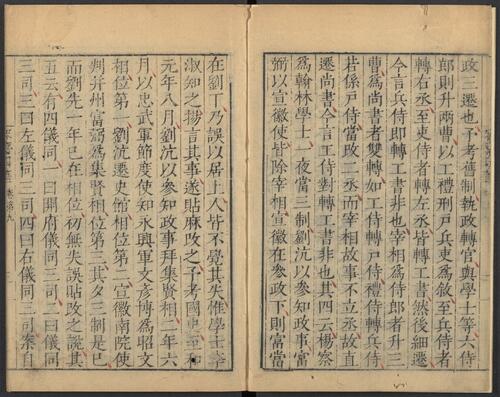 政三遷也予考舊制執政轉官與學士等六侍
郎則升兩曹以工禮刑戶兵吏爲敘至兵侍者
轉右丞至吏侍者轉左丞皆轉工書然後細遷
今言兵侍即轉工書非也宰相爲侍郎者升三
曹爲尚書者雙轉如工侍轉戶侍禮侍轉兵侍
若係戶侍當改二丞而宰相故事不立丞故直
遷尚書今言工侍對轉工書非也其四云楊察
爲翰林學士一夜當三制劉沆以參知政事富
弼以宣徽使皆除宰相宣徽在參政下則富當
在劉下乃誤以居上人皆不覺其失惟學士李
淑知之拶言其事遂貼麻改之予考國史至和
元年八月劉沆以參知政事拜集賢相二年六
月以忠武軍節度使知永興軍文彥博爲昭文
相位第一劉沆遷史館相位第二宣徽南院使
判并州富弼爲集賢相位第三其夕三制是巳
而劉先一年已在相位初無失誤貼改之說其
五云有四儀同一曰開府儀同三司二曰儀同
三司三曰左儀同三司四曰右儀同三司案自